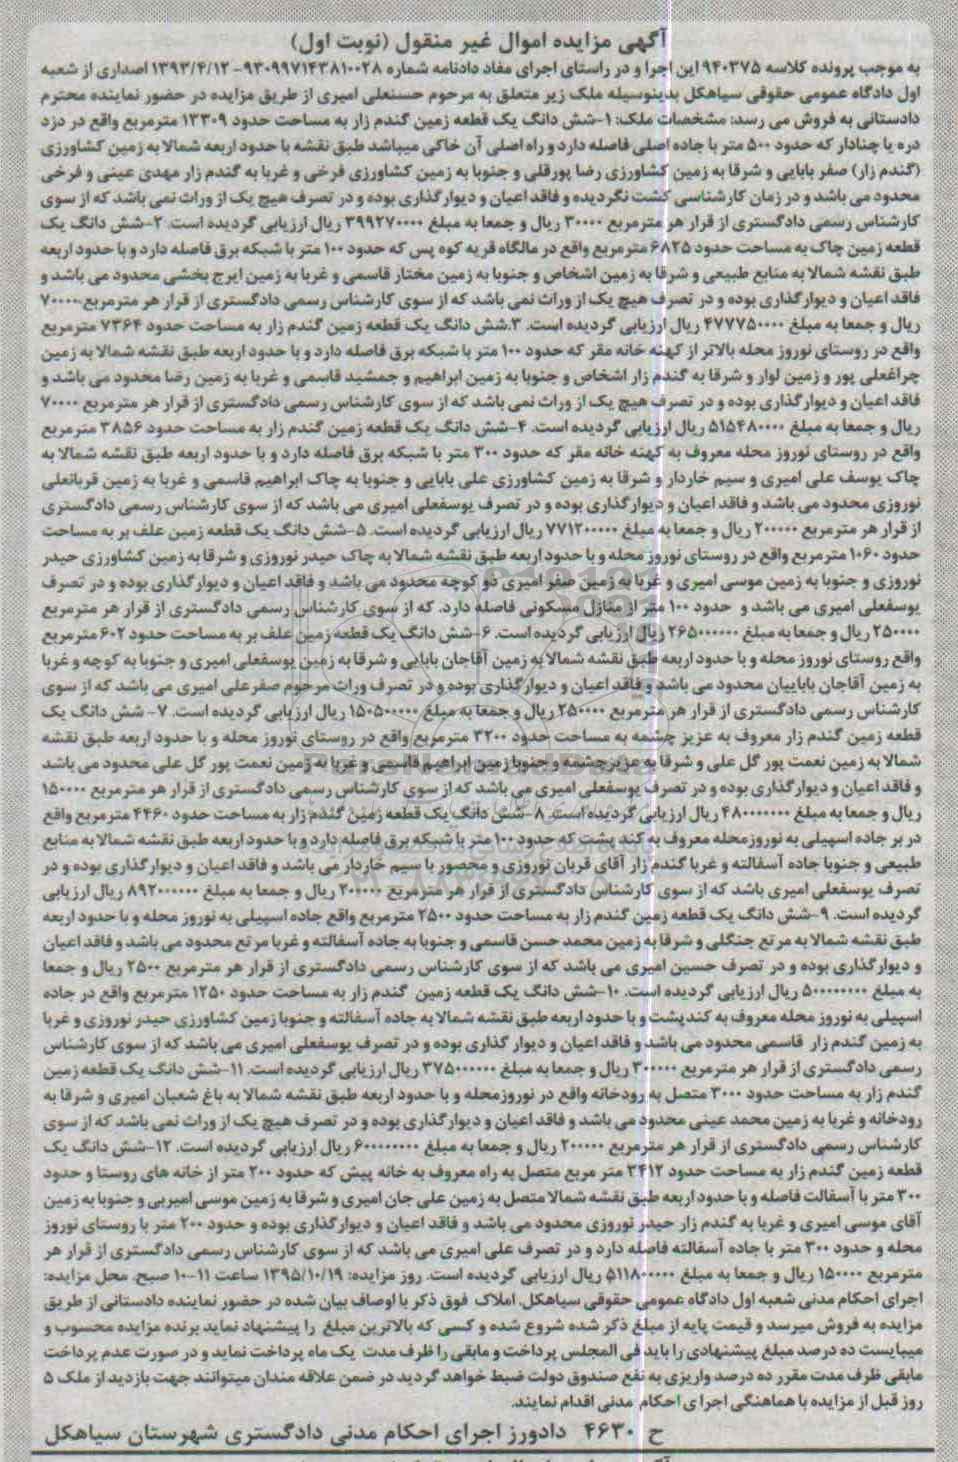 آگهی مزایده اموال غیر منقول (نوبت اول)
به موجب پرونده کلاسه ۹۴۰۳۷۵ این اجرا و در راستای اجرای مفاد دادنامه شماره ۹۳۰۹۹۷۱۴۳۸۱۰۰۲۸ -۱۳۹۳/۴/۱۲ اصداری از شعبه
اول دادگاه عمومی حقوقی سیاهکل بدینوسیله ملک زیر متعلق به مرحوم حسنعلی امیری از طریق مزایده در حضور نماینده محترم
دادستانی به فروش می رسد: مشخصات ملک: ۱-شش دانگ یک قطعه زمین گندم زار به مساحت حدود ۱۳۳۰۹ مترمربع واقع در دزد
دره یا چنادار که حدود ۵۰۰ متر با جاده اصلی فاصله دارد و راه اصلی آن خاکی میباشد طبق نقشه با حدود اربعه شمالا به زمین کشاورزی
(گندم زار) صفر بابایی و شرقا به زمین کشاورزی رضا پورقلی و جنوبا به زمین کشاورزی فرخی و غربا به گندم زار مهدی عینی و فرخی
محدود می باشد و در زمان کارشناسی کشت نگردیده و فاقد اعیان و دیوارگذاری بوده و در تصرف هیچ یک از وراث نمی باشد که از سوی
کارشناس رسمی دادگستری از قرار هر مترمربع ۳۰۰۰۰ ریال و جمعا به مبلغ ۳۹۹۲۷۰۰۰۰ ریال ارزیابی گردیده است. ۲-شش دانگ یک
قطعه زمین چاک به مساحت حدود ۶۸۲۵ مترمربع واقع در مالگاه قریه کوه پس که حدود ۱۰۰ متر با شبکه برق فاصله دارد و با حدود اربعه
طبق نقشه شمالا به منابع طبیعی و شرقا به زمین اشخاص و جنوبا به زمین مختار قاسمی و غربا به زمین ایرج بخشی محدود می باشد و
فاقد اعیان و دیوارگذاری بوده و در تصرف هیچ یک از وراث نمی باشد که از سوی کارشناس رسمی دادگستری از قرار هر مترمربع ۷۰۰۰۰
ریال و جمعا به مبلغ ۴۷۷۷۵۰۰۰۰ ریال ارزیابی گردیده است. ۳.شش دانگ یک قطعه زمین گندم زار به مساحت حدود ۷۳۶۴ مترمربع
واقع در روستای نوروز محله بالاتر از کهنه خانه مقر که حدود ۱۰۰ متر با شبکه برق فاصله دارد و با حدود اربعه طبق نقشه شمالا به زمین
چراغعلی پور و زمین لوار و شرقا به گندم زار اشخاص و جنوبا به زمین ابراهیم و جمشید قاسمی و غربا به زمین رضا محدود می باشد و
فاقد اعیان و دیوارگذاری بوده و در تصرف هیچ یک از وراث نمی باشد که از سوی کارشناس رسمی دادگستری از قرار هر مترمربع ۷۰۰۰۰
ریال و جمعا به مبلغ ۵۱۵۴۸۰۰۰۰ ریال ارزیابی گردیده است. ۴-شش دانگ یک قطعه زمین گندم زار به مساحت حدود ۳۸۵۶ مترمربع
واقع در روستای نوروز محله معروف به کهنه خانه مقر که حدود ۳۰۰ متر با شبکه برق فاصله دارد و با حدود اربعه طبق نقشه شمالا به
چاک یوسف علی امیری و سیم خاردار و شرقا به زمین کشاورزی علی بابایی و جنوبا به چاک ابراهیم قاسمی و غربا به زمین قربانعلی
نوروزی محدود می باشد و فاقد اعیان و دیوارگذاری بوده و در تصرف یوسفعلی امیری می باشد که از سوی کارشناس رسمی دادگستری
از قرار هر مترمربع ۲۰۰۰۰۰ ریال و جمعا به مبلغ ۷۷۱۲۰۰۰۰۰ ریال ارزیابی گردیده است. ۵-شش دانگ یک قطعه زمین علف بر به مساحت
حدود ۱۰۶۰ مترمربع واقع در روستای نوروز محله و با حدود اربعه طبق نقشه شمالا به چاک حیدر نوروزی و شرقا به زمین کشاورزی حیدر
نوروزی و جنوبا به زمین موسی امیری و غربا به زمین صفر امیری دو کوچه محدود می باشد و فاقد اعیان و دیوارگذاری بوده و در تصرف
یوسفعلی امیری می باشد و حدود ۱۰۰ متر از منازل مسکونی فاصله دارد. که از سوی کارشناس رسمی دادگستری از قرار هر مترمربع
۲۵۰۰۰۰ ریال و جمعا به مبلغ ۲۶۵۰۰۰۰۰۰ ریال ارزیابی گردیده است. ۶-شش دانگ یک قطعه زمین علف بر به مساحت حدود ۶۰۲ مترمربع
واقع روستای نوروز محله و با حدود اربعه طبق نقشه شمالا به زمین آقاجان بابایی و شرقا به زمین یوسفعلی امیری و جنوبا به کوچه و غربا
به زمین آقاجان باباییان محدود می باشد و فاقد اعیان و دیوارگذاری بوده و در تصرف وراث مرحوم صفرعلی امیری می باشد که از سوی
کارشناس رسمی دادگستری از قرار هر مترمربع ۲۵۰۰۰۰ ریال و جمعا به مبلغ ۱۵۰۵۰۰۰۰۰ ریال ارزیابی گردیده است. ۷- شش دانگ یک
قطعه زمین گندم زار معروف به عزیز چشمه به مساحت حدود ۳۲۰۰ مترمربع واقع در روستای نوروز محله و با حدود اربعه طبق نقشه
شمالا به زمین نعمت پور گل علی و شرقا به عزیزچشمه و جنوبا زمین ابراهیم قاسمی و غربا به زمین نعمت پور گل علی محدود می باشد
و فاقد اعیان و دیوارگذاری بوده و در تصرف یوسفعلی امیری می باشد که از سوی کارشناس رسمی دادگستری از قرار هر مترمربع ۱۵۰۰۰۰
ریال و جمعا به مبلغ ۴۸۰۰۰۰۰۰۰ ریال ارزیابی گردیده است. ۸-شش دانگ یک قطعه زمین گندم زار به مساحت حدود ۴۴۶۰ مترمربع واقع
در بر جاده اسپیلی به نوروزمحله معروف به کند پشت که حدود ۱۰۰ متر با شبکه برق فاصله دارد و با حدود اربعه طبق نقشه شمالا به منابع
طبیعی و جنوبا جاده آسفالته و غربا گندم زار آقای قربان نوروزی و محصور با سیم خاردار می باشد و فاقد اعیان و دیوارگذاری بوده و در
تصرف یوسفعلی امیری باشد که از سوی کارشناس دادگستری از قرار هر مترمربع ۲۰۰۰۰۰ ریال و جمعا به مبلغ ۸۹۲۰۰۰۰۰۰ ریال ارزیابی
گردیده است. ۹-شش دانگ یک قطعه زمین گندم زار به مساحت حدود ۲۵۰۰ مترمربع واقع جاده اسپیلی به نوروز محله و با حدود اربعه
طبق نقشه شمالا به مرتع جنگلی و شرقا به زمین محمد حسن قاسمی و جنوبا به جاده آسفالته و غربا مرتع محدود می باشد و فاقد اعیان
و دیوارگذاری بوده و در تصرف حسین امیری می باشد که از سوی کارشناس رسمی دادگستری از قرار هر مترمربع ۲۵۰۰ ریال و جمعا
به مبلغ ۵۰۰۰۰۰۰۰۰ ریال ارزیابی گردیده است. ۱۰-شش دانگ یک قطعه زمین گندم زار به مساحت حدود ۱۲۵۰ مترمربع واقع در جاده
اسپیلی به نوروز محله معروف به کندپشت و با حدود اربعه طبق نقشه شمالا به جاده آسفالته و جنوبا زمین کشاورزی حیدر نوروزی و غربا
به زمین گندم زار قاسمی محدود می باشد و فاقد اعیان و دیوار گذاری بوده و در تصرف یوسفعلی امیری می باشد که از سوی کارشناس
رسمی دادگستری از قرار هر مترمربع ۳۰۰۰۰۰ ریال و جمعا به مبلغ ۳۷۵۰۰۰۰۰۰ ریال ارزیابی گردیده است. ۱۱-شش دانگ یک قطعه زمین
گندم زار به مساحت حدود ۳۰۰۰ متصل به رودخانه واقع در نوروزمحله و با حدود اربعه طبق نقشه شمالا به باغ شعبان امیری و شرقا به
رودخانه و غربا به زمین محمد عینی محدود می باشد و فاقد اعیان و دیوارگذاری بوده و در تصرف هیچ یک از وراث نمی باشد که از سوی
کارشناس رسمی دادگستری از قرار هر مترمربع ۲۰۰۰۰۰ ریال و جمعا به مبلغ ۶۰۰۰۰۰۰۰۰ ریال ارزیابی گردیده است. ۱۲-شش دانگ یک
قطعه زمین گندم زار به مساحت حدود ۳۴۱۲ متر مربع متصل به راه معروف به خانه پیش که حدود ۲۰۰ متر از خانه های روستا و حدود
۳۰۰ متر با آسفالت فاصله و با حدود اربعه طبق نقشه شمالا متصل به زمین علی جان امیری و شرقا به زمین موسی امیربی و جنوبا به زمین
آقای موسی امیری و غربا به گندم زار حیدر نوروزی محدود می باشد و فاقد اعیان و دیوارگذاری بوده و حدود ۲۰۰ متر با روستای نوروز
محله و حدود ۳۰۰ متر با جاده آسفالته فاصله دارد و در تصرف علی امیری می باشد که از سوی کارشناس رسمی دادگستری از قرار هر
مترمربع ۱۵۰۰۰۰ ریال و جمعا به مبلغ ۵۱۱۸۰۰۰۰۰ ریال ارزیابی گردیده است. روز مزایده: ۱۳۹۵/۱۰/۱۹ ساعت ۱۱-۱۰ صبح. محل مزایده:
اجرای احکام مدنی شعبه اول دادگاه عمومی حقوقی سیاهکل. املاک فوق ذکر با اوصاف بیان شده در حضور نماینده دادستانی از طریق
مزایده به فروش میرسد و قیمت پایه از مبلغ ذکر شده شروع شده و کسی که بالاترین مبلغ را پیشنهاد نماید برنده مزایده محسوب و
میبایست ده درصد مبلغ پیشنهادی را باید فی المجلس پرداخت و مابقی را ظرف مدت یک ماه پرداخت نماید و در صورت عدم پرداخت
مابقی ظرف مدت مقرر ده درصد واریزی به نفع صندوق دولت ضبط خواهد گردید در ضمن علاقه مندان میتوانند جهت بازدید از ملک ۵
روز قبل از مزایده با هماهنگی اجرای احکام مدنی اقدام نمایند.
ح ۴۶۳۰ دادورز اجرای احکام مدنی دادگستری شهرستان سیاهکل